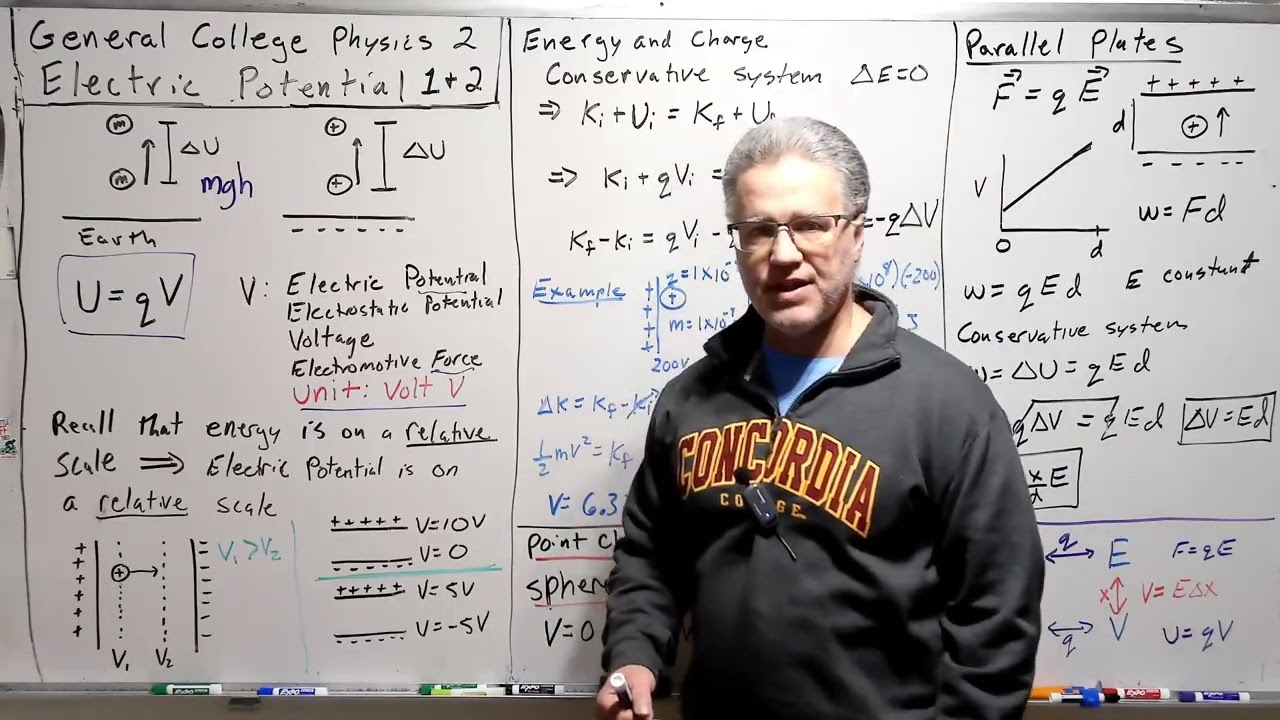 General College Physics 2
Electric Potential 1+2
m
ΔU
m
mgh
Earth
+
ΔU
+
- - - - - -
U = qV
V: Electric Potential
Electrostatic Potential
Voltage
Electromotive Force
Unit: Volt V
Recall that energy is on a relative
scale ⟹ Electric Potential is on
a relative scale
+
V₁ V₂
V₁ > V₂
+++++ V=10V
V=0
+++++ V=5V
V=-5V
Energy and Charge
Conservative system ΔE=0
⟹ Ki + Ui = Kf + U
⟹ Ki + qVi =
Kf - Ki = qVi -
= -qΔV
Example
q = 1×10⁻
m = 1×10⁻
200V
)(-200)
ΔK = Kf - Ki
½mv² = Kf
V = 6.3
Point Ch
sphere
V=0
Parallel Plates
F = qE
+ + + + +
d
+
- - - - -
V
0 d
W = Fd
W = qEd E constant
Conservative system
W = ΔU = qEd
qΔV = qEd ΔV = Ed
E
q E F = qE
x V = EΔx
q V U = qV
CONCORDIA
COLLEGE
EXPO